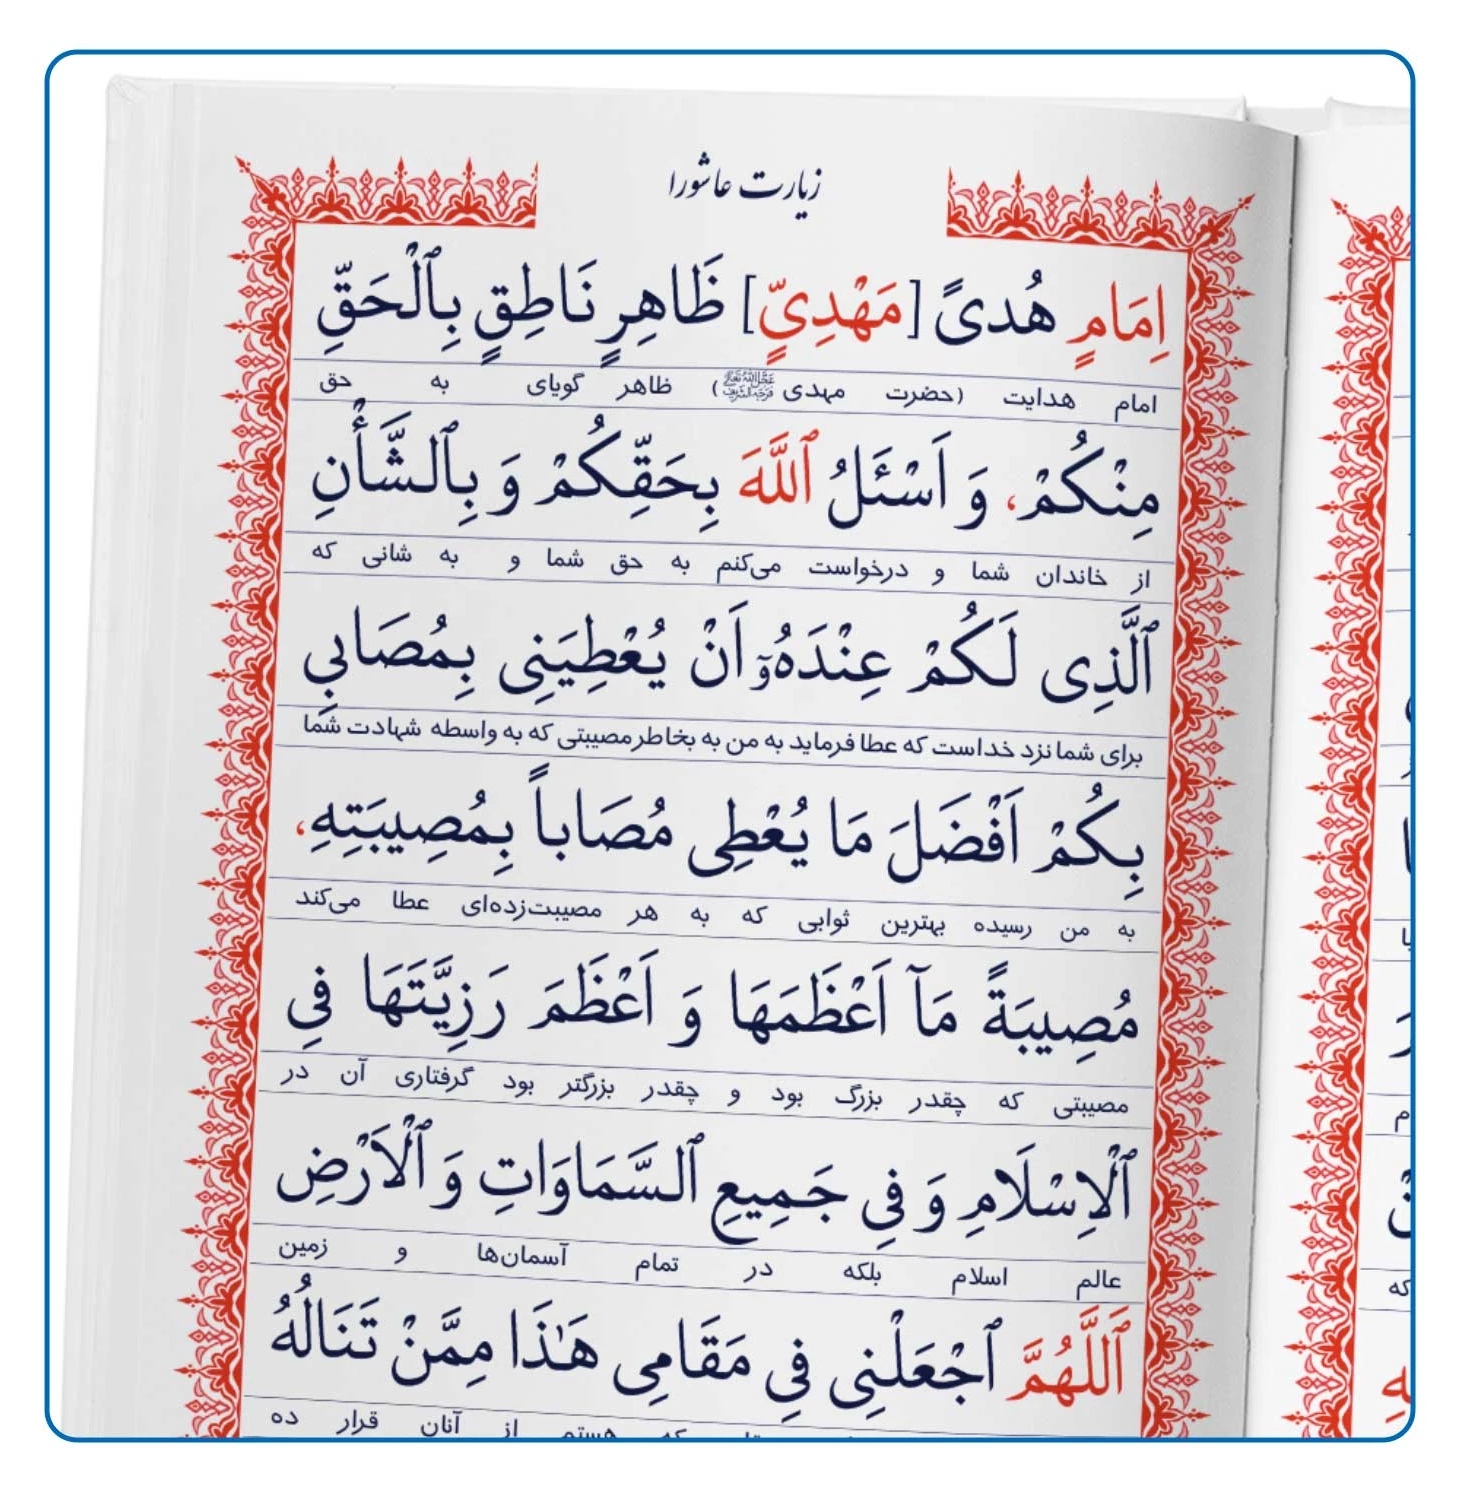 زیارت عاشورا
اِمَامٍ هُدىً [مَهْدِيٍّ] ظَاهِرٍ نَاطِقٍ بِٱلْحَقِّ
امام هدایت (حضرت مهدی عَجَّلَ‌اللهُ‌تَعالی فَرَجَهُ‌الشَّریف) ظاهر گویای به حق
مِنْكُمْ، وَ اَسْئَلُ ٱللَّهَ بِحَقِّكُمْ وَ بِٱلشَّأْنِ
از خاندان شما و درخواست می‌کنم به حق شما و به شانی که
ٱلَّذِى لَكُمْ عِنْدَهُۥٓ اَنْ يُعْطِيَنِى بِمُصَابِي
برای شما نزد خداست که عطا فرماید به من به بخاطر مصیبتی که به واسطه شهادت شما
بِكُمْ اَفْضَلَ مَا يُعْطِى مُصَاباً بِمُصِيبَتِهِ،
به من رسیده بهترین ثوابی که به هر مصیبت‌زده‌ای عطا می‌کند
مُصِيبَةً مَآ اَعْظَمَهَا وَ اَعْظَمَ رَزِيَّتَهَا فِي
مصیبتی که چقدر بزرگ بود و چقدر بزرگتر بود گرفتاری آن در
ٱلْاِسْلَامِ وَ فِي جَمِيعِ ٱلسَّمَاوَاتِ وَ ٱلْاَرْضِ
عالم اسلام بلکه در تمام آسمان‌ها و زمین
ٱَللَّهُمَّ ٱجْعَلْنِى فِي مَقَامِى هَٰذَا مِمَّنْ تَنَالُهُ
که هستم از آنان قرار ده